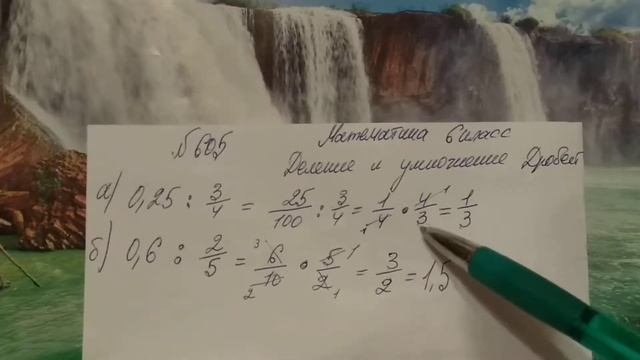 № 605 Математика 6 класс
Деление и умножение Дробей
а) 0,25 : 3/4 = 25/100 : 3/4 = 1/4 · 4/3 = 1/3
б) 0,6 : 2/5 = 6/10 · 5/2 = 3/2 = 1,5